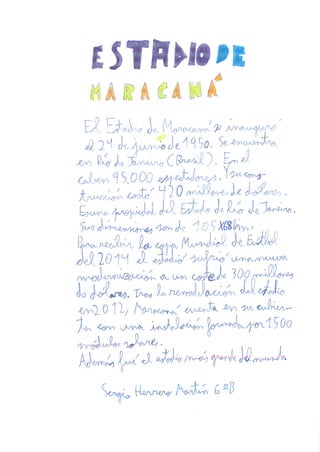 ESTADIO DE
MARACANÁ
El Estadio de Maracaná se inauguró
el 24 de junio de 1950. Se encuentra
en Río de Janeiro (Brasil). En el
caben 95,000 espectadores. Y su cons-
trucción costó 420 millones de dolares.
Es una propiedad del Estado de Río de Janeiro.
Sus dimensiones son de 105x68m.
Para recibir la copa Mundial de Fútbol
del 2014 el estadio sufrió una nueva
modernización a un coste de 300 millones
de dólares. Tras la remodelación del estadio
en 2012, Maracaná cuenta en su cubier-
ta con una instalación formada por 1500
módulos solares.
Además fué el estadio más grande del mundo.
Sergio Herrero Martín 6ºB